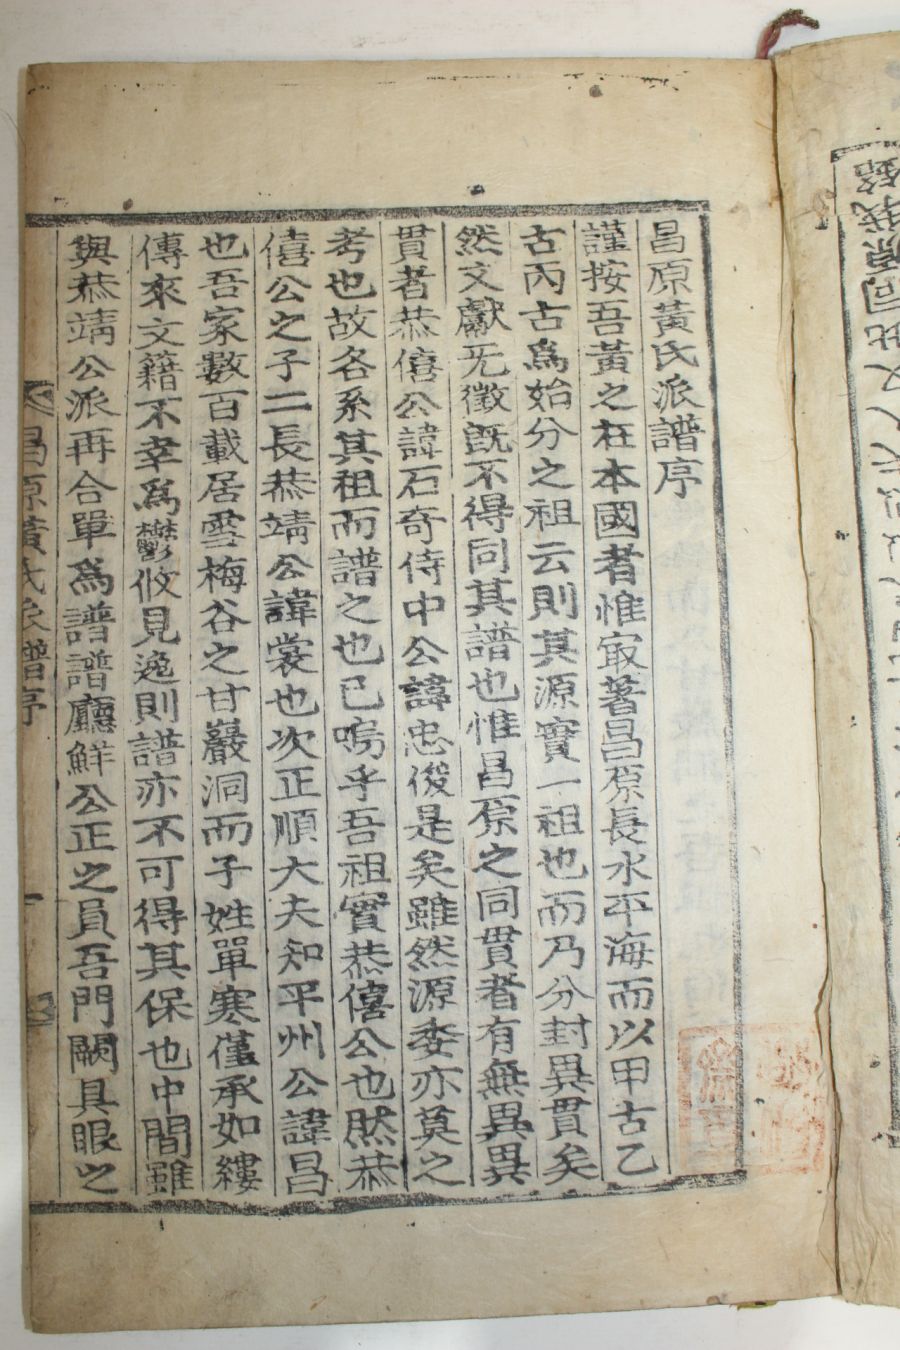 昌原黃氏派譜序
謹按吾黃之在本國者惟㝡著昌原長水平海而以甲古乙
古丙古爲始分之祖云則其源實一祖也而乃分封異貫矣
然文獻旡徵旣不得同其譜也惟昌原之同貫者有無異異
貫者恭僖公諱石奇侍中公諱忠俊是矣雖然源委亦莫之
考也故各系其祖而譜之也已嗚乎吾祖實恭僖公也然恭
僖公之子二長恭靖公諱裳也次正順大夫知平州公諱昌
也吾家數百載居雪梅谷之甘巖洞而子姓單寒僅承如縷
傳來文籍不幸爲鬱攸見逸則譜亦不可得其保也中間雖
與恭靖公派再合單爲譜譜廳鮮公正之員吾門闕具眼之
昌原黃氏派譜序 一